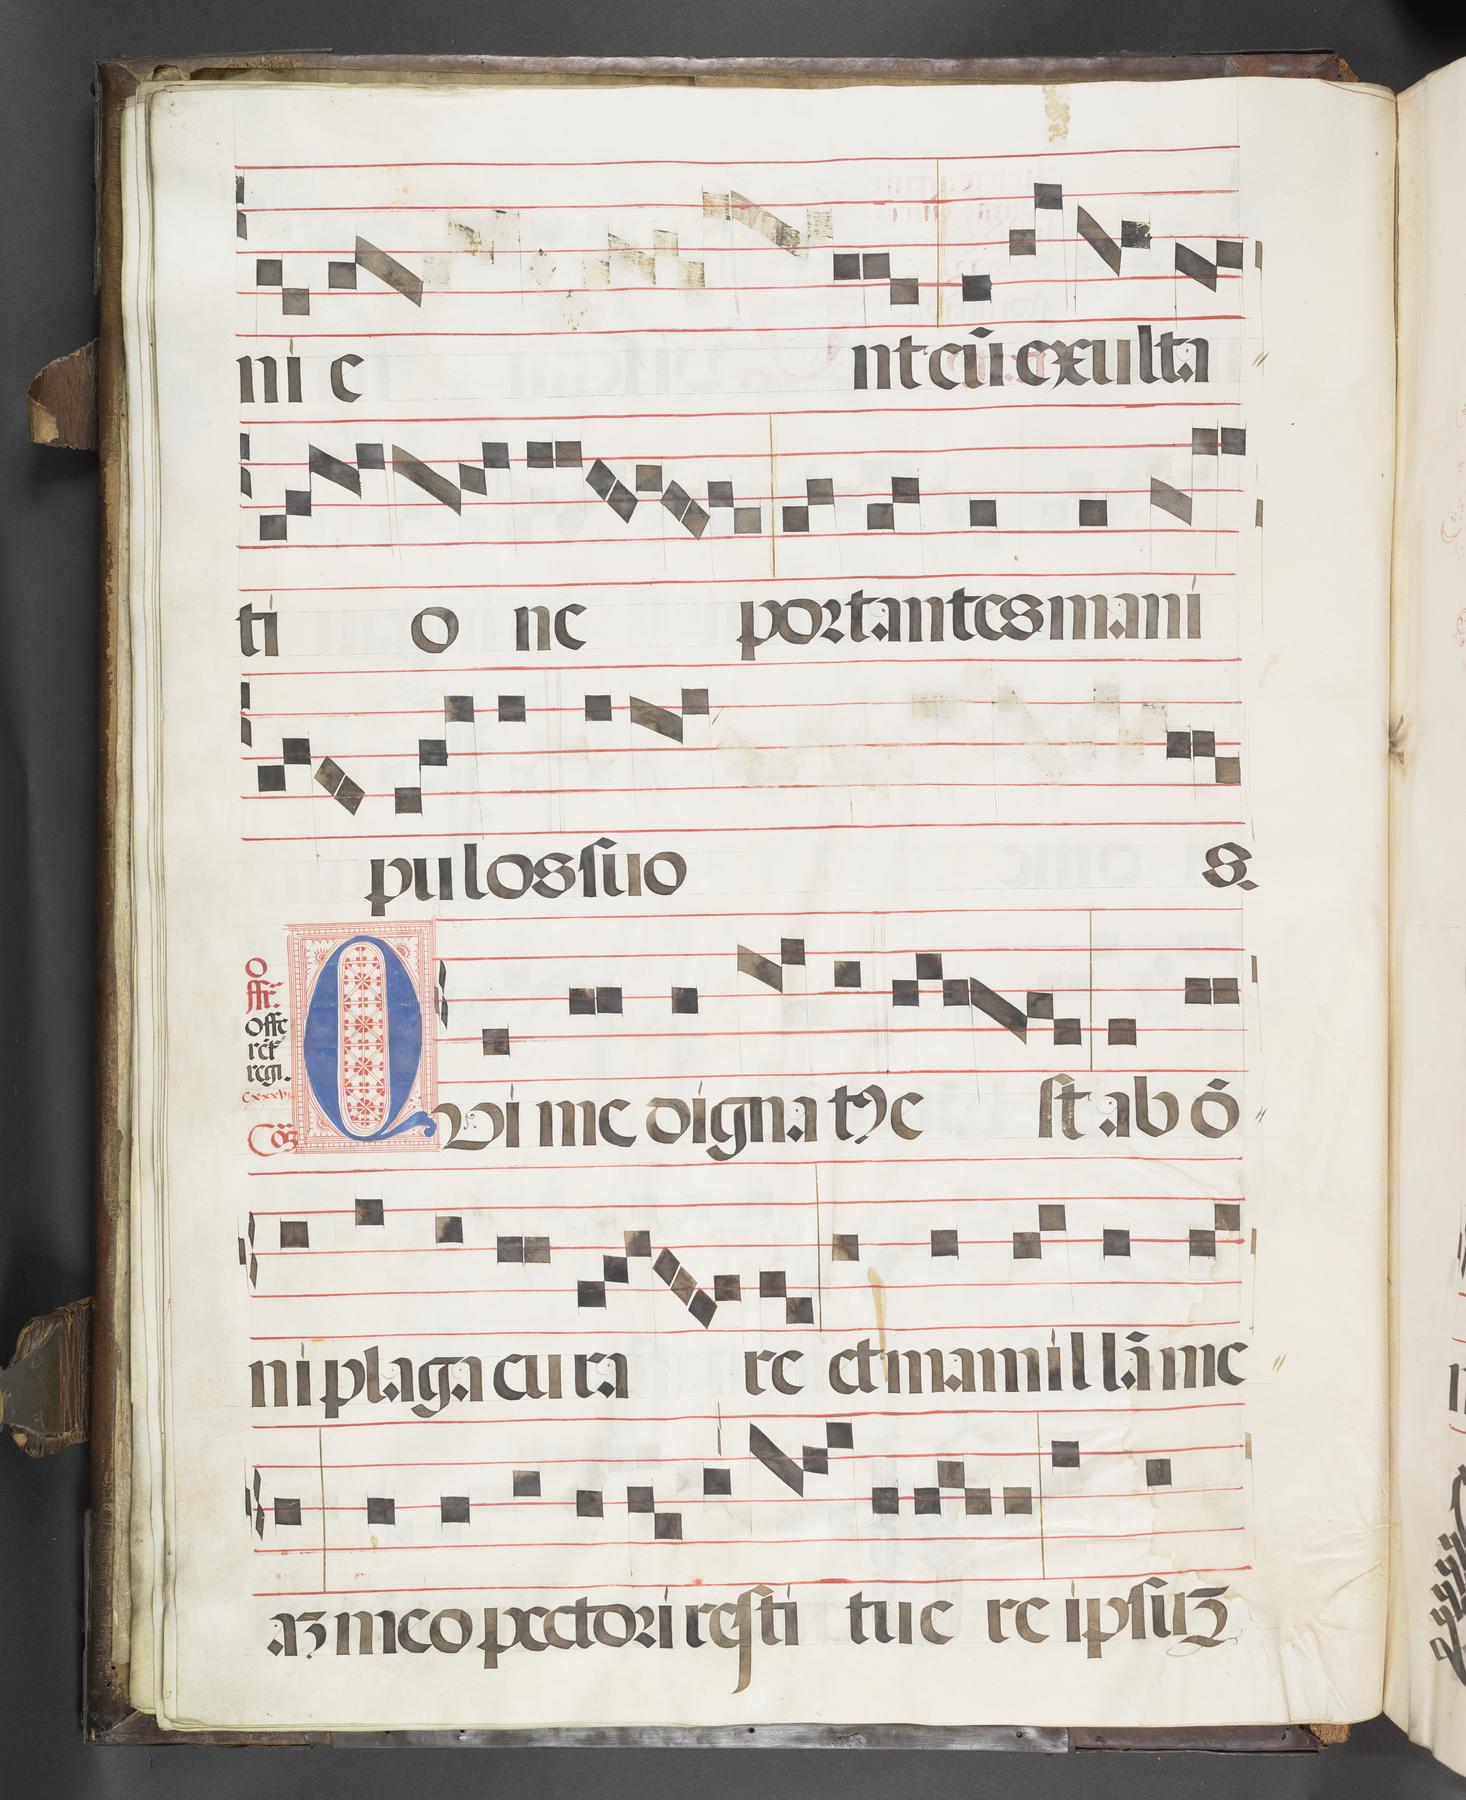 ni e nt cū exulta
ti o ne portantes mani
pulos suo s.
Offr̄.
Offe
rēt̄
regi.
cxxxvi
Cōȝ
QVi me dignat9 e st ab ō
ni plaga cura re et mamillā me
aȝ meo pectori resti tue re ipsuȝ